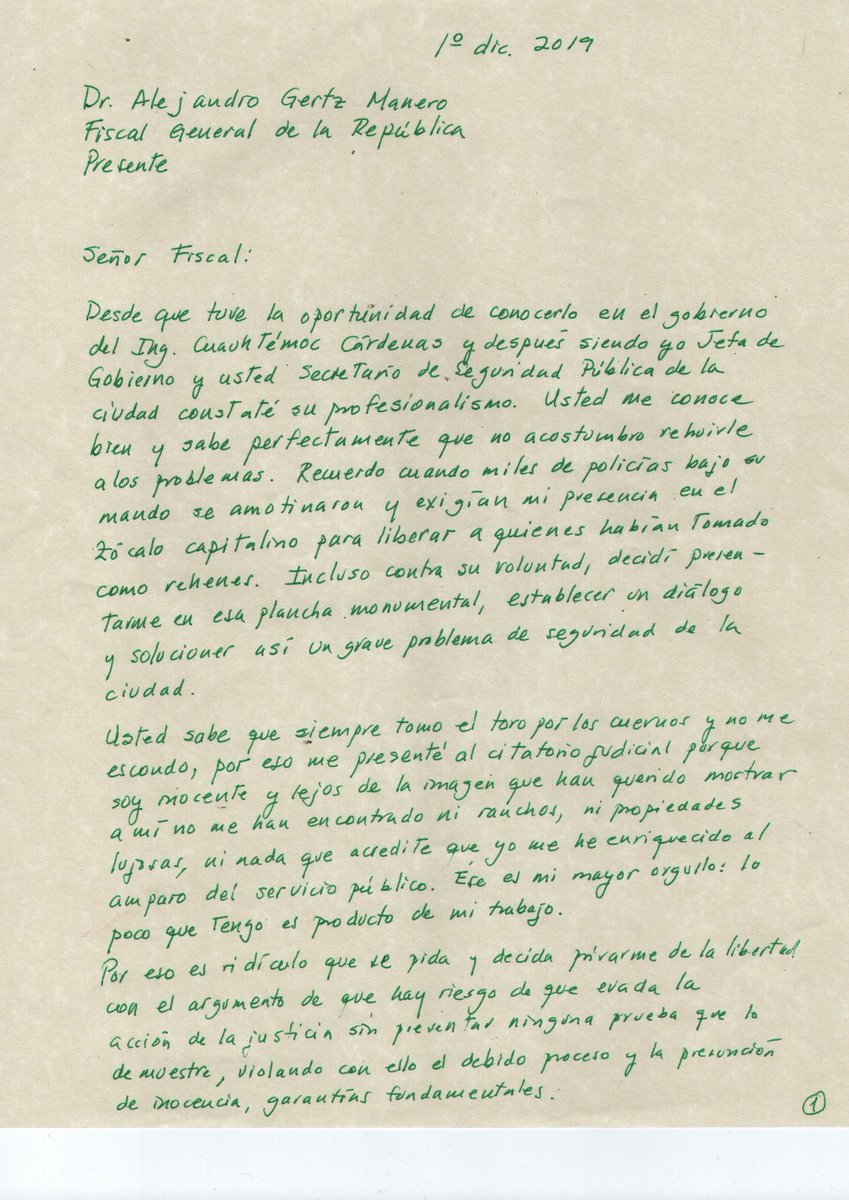 1º dic. 2019
Dr. Alejandro Gertz Manero
Fiscal General de la República
Presente
Señor Fiscal:
Desde que tuve la oportunidad de conocerlo en el gobierno
del Ing. Cuauhtémoc Cárdenas y después siendo yo Jefa de
Gobierno y usted Secretario de Seguridad Pública de la
ciudad constaté su profesionalismo. Usted me conoce
bien y sabe perfectamente que no acostumbro rehuirle
a los problemas. Recuerdo cuando miles de policías bajo su
mando se amotinaron y exigían mi presencia en el
Zócalo capitalino para liberar a quienes habían tomado
como rehenes. Incluso contra su voluntad, decidí presen-
tarme en esa plancha monumental, establecer un diálogo
y solucioner así un grave problema de seguridad de la
ciudad.
Usted sabe que siempre tomo el toro por los cuernos y no me
escondo, por eso me presenté al citatorio judicial porque
soy inocente y lejos de la imagen que han querido mostrar
a mí no me han encontrado ni ranchos, ni propiedades
lujosas, ni nada que acredite que yo me he enriquecido al
amparo del servicio público. Ése es mi mayor orgullo: lo
poco que tengo es producto de mi trabajo.
Por eso es ridículo que se pida y decida privarme de la libertad
con el argumento de que hay riesgo de que evada la
acción de la justicia sin presentar ninguna prueba que lo
demuestre, violando con ello el debido proceso y la presunción
de inocencia, garantías fundamentales.
1